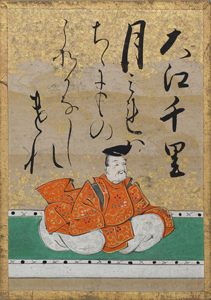 大江千里
月みれハ
ちゝにもの
こそかなし
けれ